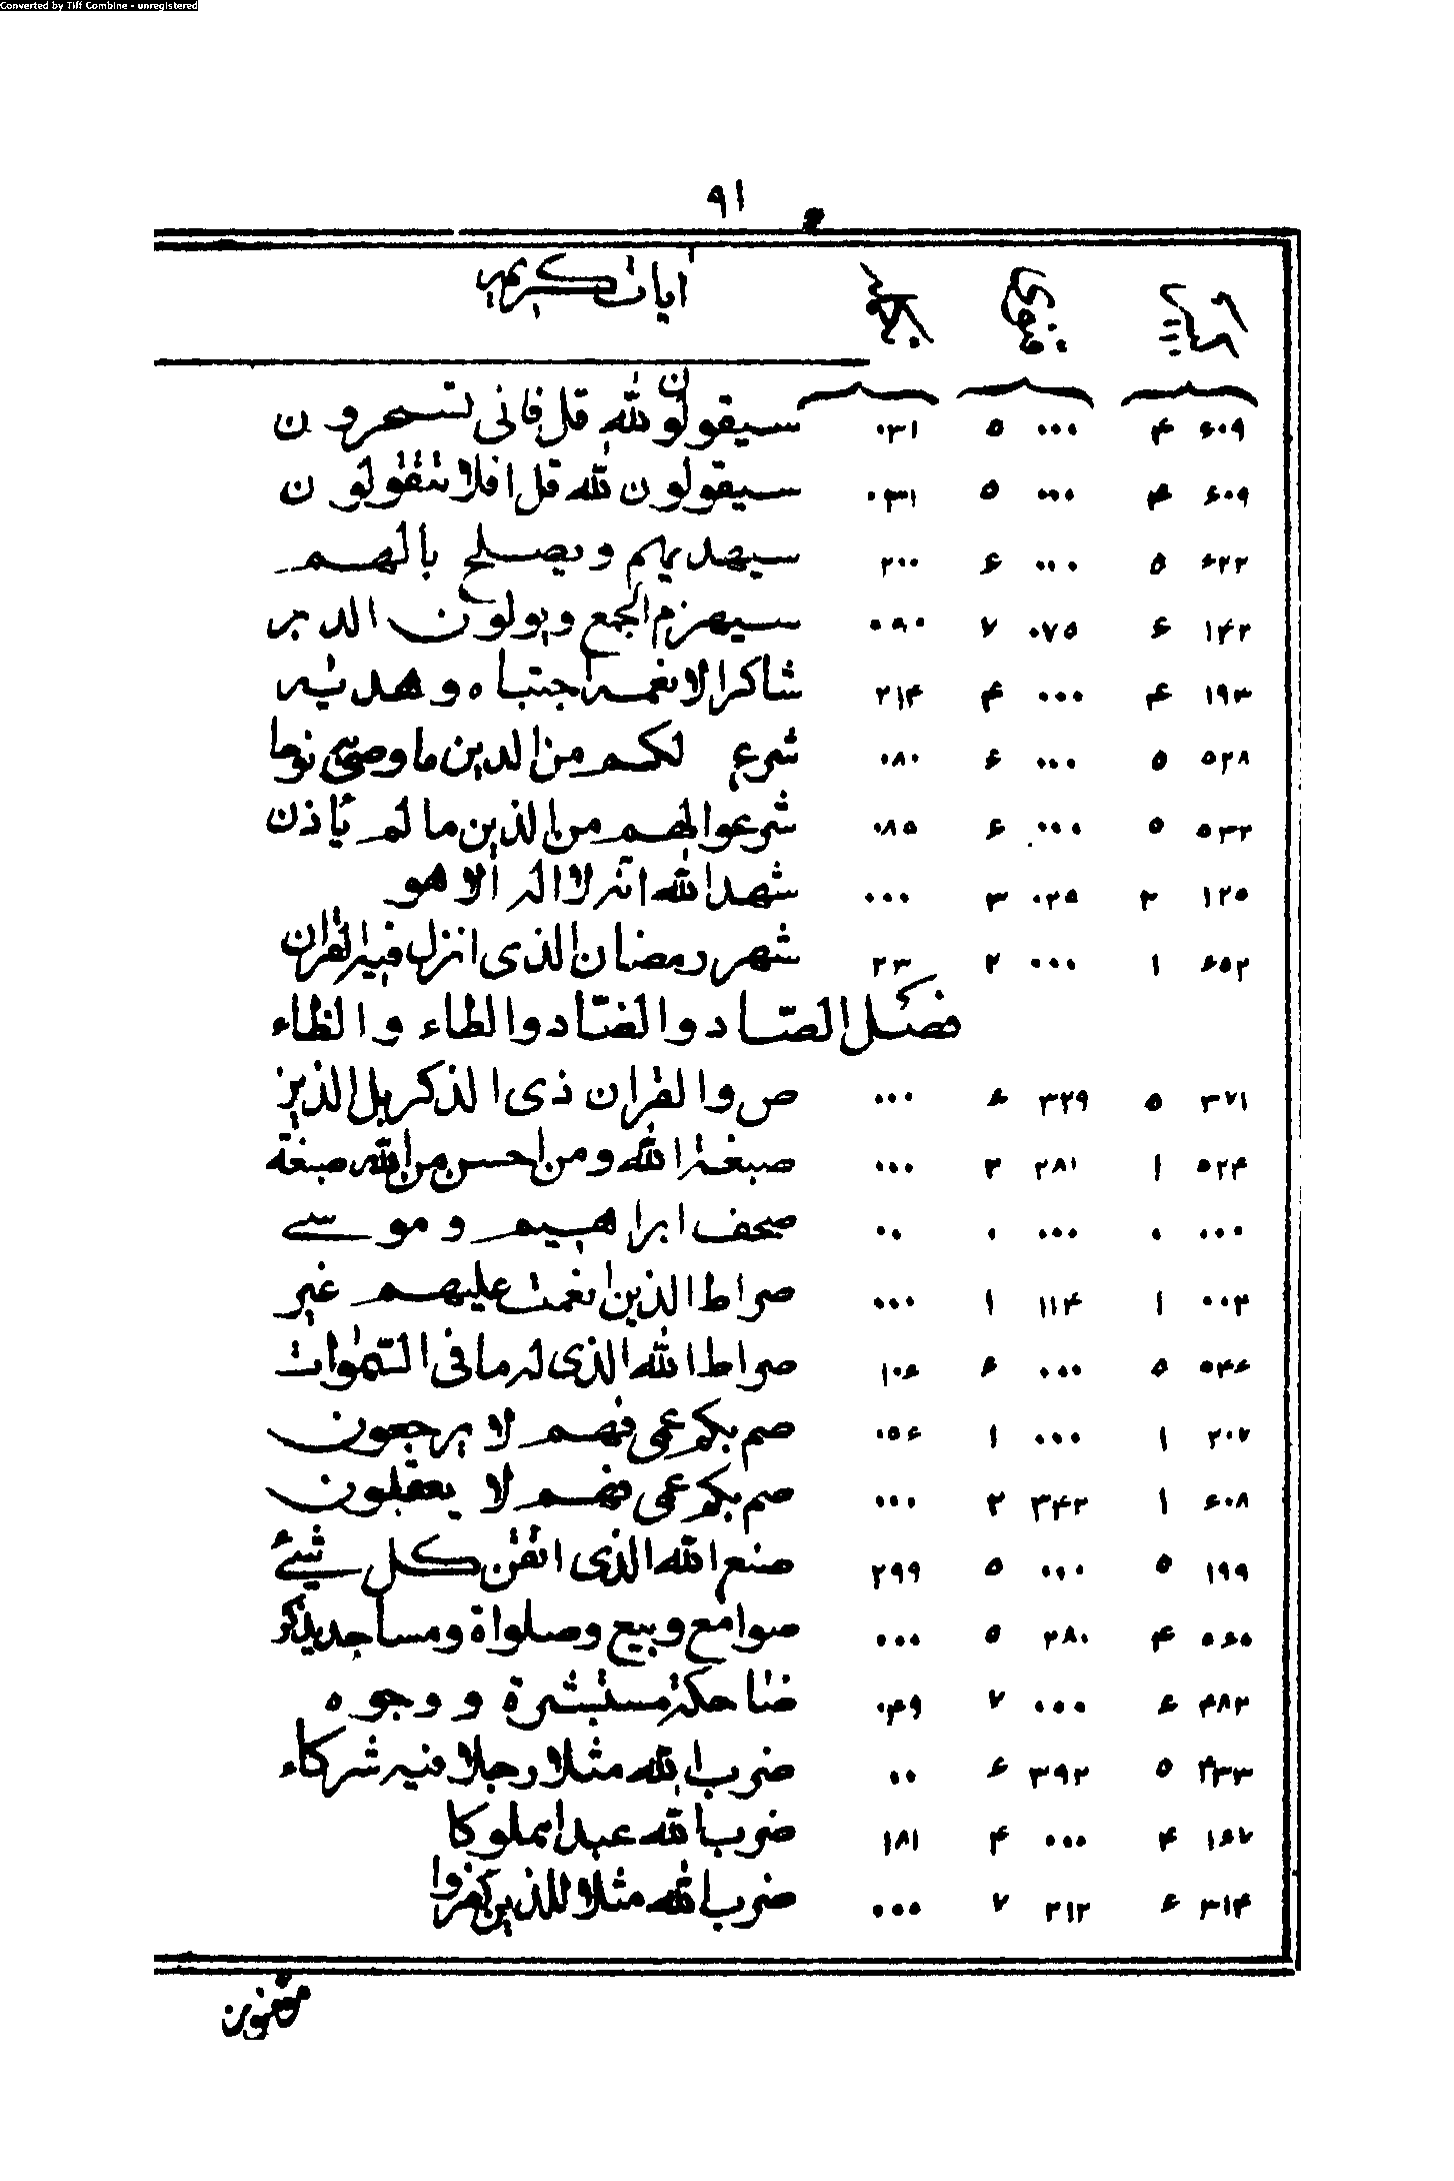 Converted by Tiff Combine - unregistered
٩١
ايات كريمه
۶۰۹ ۴ ۰۰۰ ۵ ۰۳۱ سيقولون لله قل فانى تسحرون
۶۰۹ ۴ ۰۰۰ ۵ ۰۳۱ سيقولون لله قل افلا تتقولون
۶۲۲ ۵ ۰۰۰ ۶ ۲۰۰ سيهديهم ويصلح بالهم
۱۴۲ ۶ ۰۷۵ ۷ ۰۹۰ سيهزم الجمع ويولون الدبر
۱۹۳ ۴ ۰۰۰ ۴ ۲۱۴ شاكرا لانعمه اجتباه وهديه
۵۲۸ ۵ ۰۰۰ ۶ ۰۸۰ شرع لكم من الدين ما وصى به نوحا
۵۳۲ ۵ ۰۰۰ ۶ ۰۸۵ شرعوا لهم من الدين ما لم ياذن
۱۲۵ ۲ ۰۲۵ ۳ ۰۰۰ شهد الله انه لا اله الا هو
۶۵۲ ۱ ۰۰۰ ۲ ۲۳ شهر رمضان الذى انزل فيه القران
فصل الصّاد والضّاد والطاء والظاء
۳۷۱ ۵ ۳۲۹ ۶ ۰۰۰ ص والقران ذى الذكر بل الذين
۵۲۴ ۱ ۲۸۱ ۲ ۰۰۰ صبغة الله ومن احسن من الله صبغة
۰۰۰ ۰ ۰۰۰ ۰ ۰۰ صحف ابراهيم وموسے
۰۰۲ ۱ ۱۱۴ ۱ ۰۰۰ صراط الذين انعمت عليهم غير
۵۴۶ ۵ ۰۰۰ ۶ ۱۰۶ صراط الله الذى له ما فى السّمٰوات
۲۰۷ ۱ ۰۰۰ ۱ ۰۵۶ صم بكم عمى فهم لا يرجعون
۶۰۸ ۱ ۳۴۲ ۲ ۰۰۰ صم بكم عمى فهم لا يعقلون
۱۹۹ ۵ ۰۰۰ ۵ ۲۹۹ صنع الله الذى اتقن كل شےئ
۵۶۵ ۴ ۲۸۰ ۵ ۰۰۰ صوامع وبيع وصلواة ومساجد يذكر
۴۸۲ ۶ ۰۰۰ ۷ ۰۴۹ ضاحكة مستبشرة ووجوه
۴۳۳ ۵ ۳۹۲ ۶ ۰۰ ضرب الله مثلا رجلا فيه شركاء
۱۸۷ ۴ ۰۰۰ ۴ ۱۸۱ ضرب الله عبدا مملوكا
۳۱۴ ۶ ۲۱۲ ۷ ۰۰۰ ضرب الله مثلا للذين كفروا